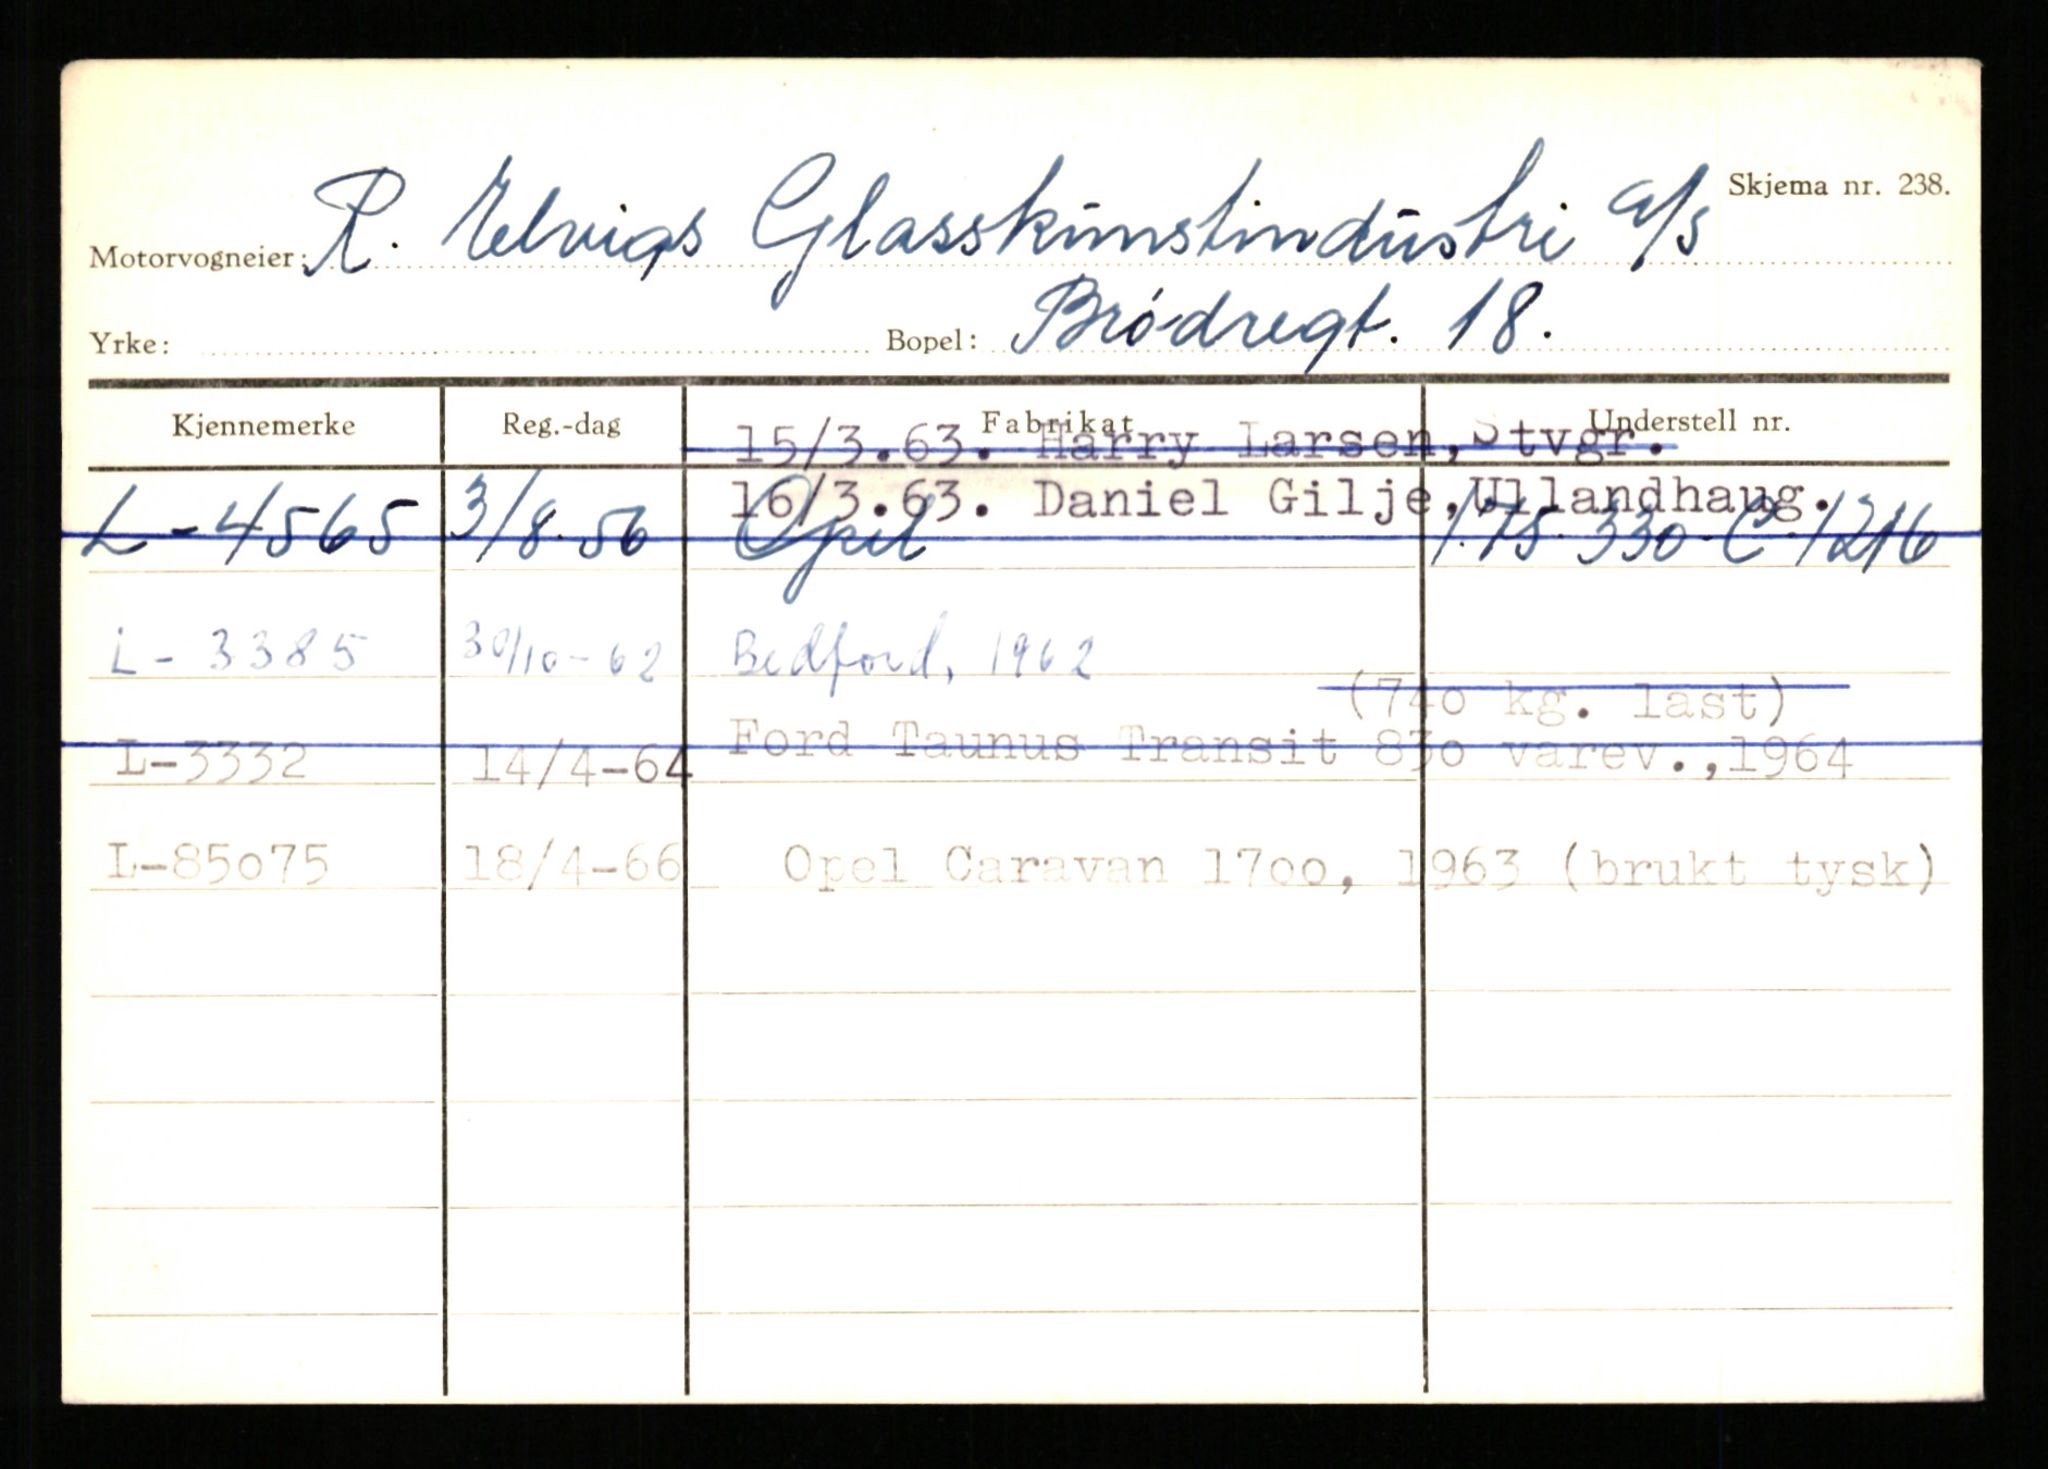 Skjema nr. 238.
Motorvogneier: R. Elvigs Glasskunstindustri a/s
Yrke: Bopel: Brødregt. 18.
Kjennemerke Reg.-dag Fabrikat Understell nr.
15/3.63. Harry Larsen, Stvgr.
16/3.63. Daniel Gilje, Ullandhaug.
L-4565 3/8.56 Opel 1.75 330 C 1216
L-3385 30/10-62 Bedford, 1962
(740 kg. last)
L-3332 14/4-64 Ford Taunus Transit 830 varev.,1964
L-85075 18/4-66 Opel Caravan 1700, 1963 (brukt tysk)